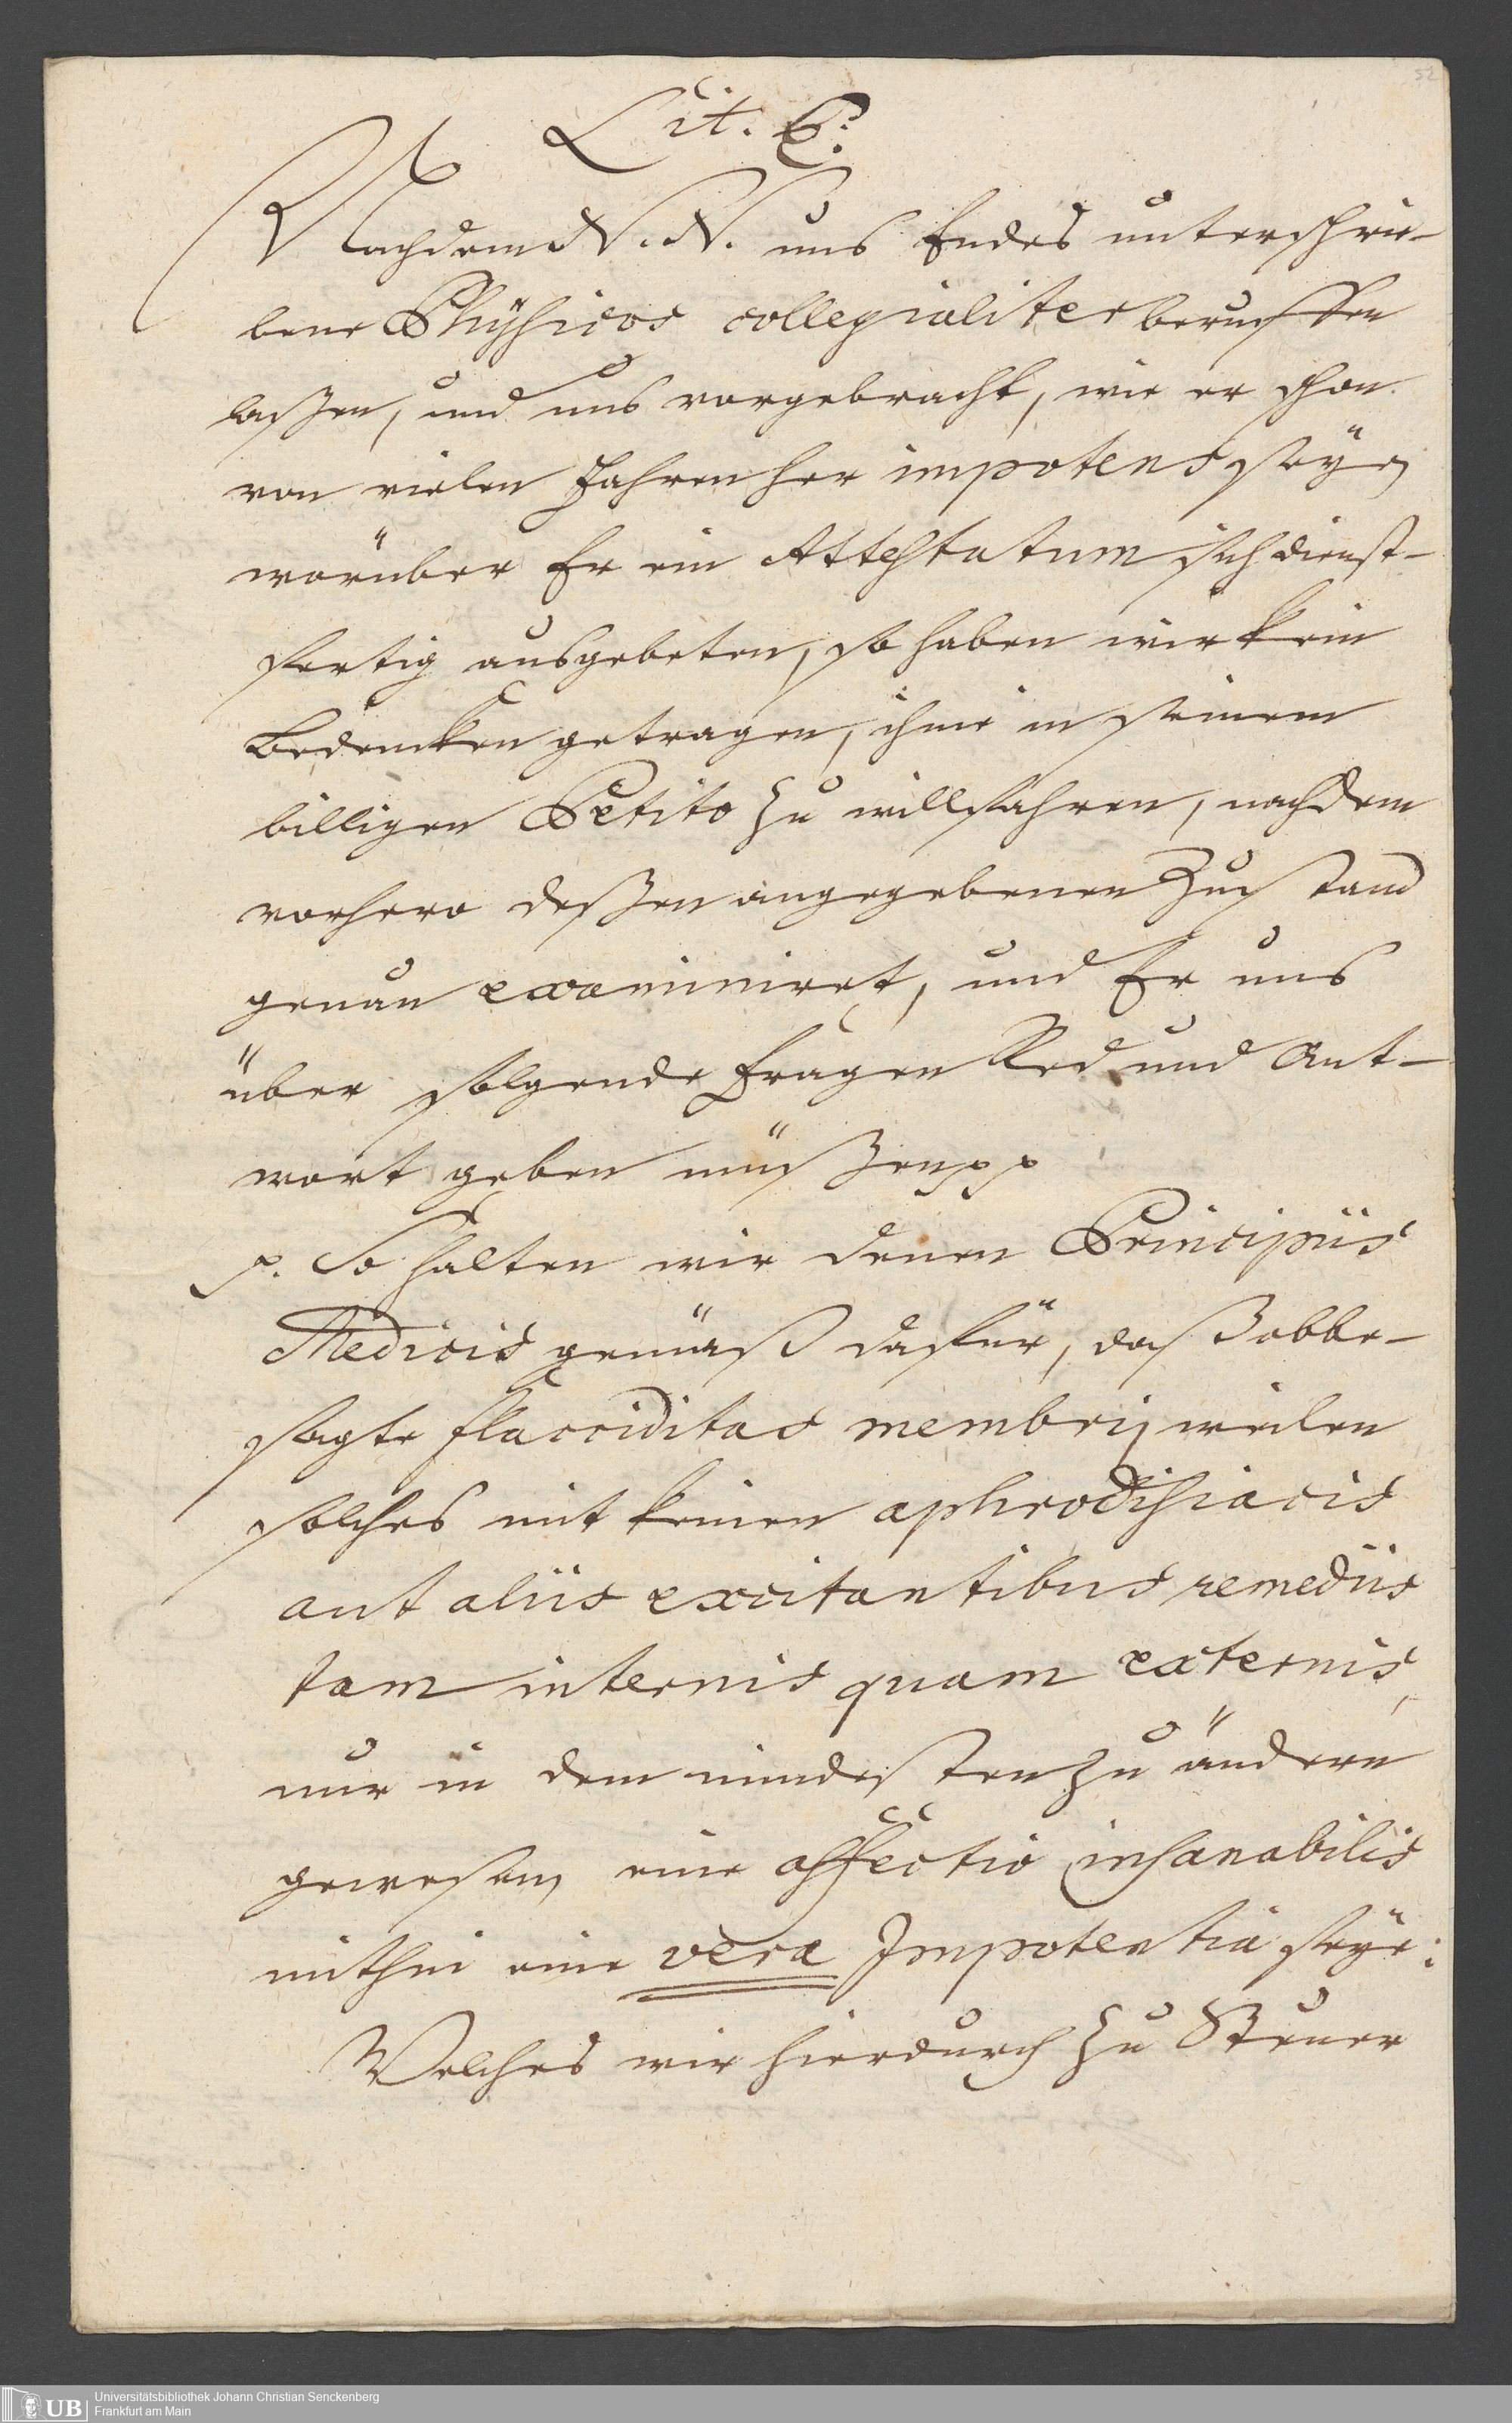 52
Lit. C:
Nachdem N. N. uns Endes unterschrie-
bene Physicos collegialiter beruffen
laßen, und uns vorgebracht, wie er schon
von vielen Jahren her impotens seÿe,
worüber Er ein Attestatum sich dienst-
fertig ausgebeten, so haben wir kein
Bedencken getragen, ihme in seinem
billigen Petito zu willfahren, nachdem
vorhero deßen angegebenen Zustand
genau examiniret, und Er uns
über folgende Fragen Red und Ant-
wort geben müßen p p
p. So halten wir denen Principiis
Medicis gemäß dafür, daß obbe-
sagte flacciditas membri, weilen
solches mit keinen aphrodisiacis
aut aliis excitantibus remediis
tam internis quam externis,
nur in dem mindesten zu ändern
gewesen, eine affectio insanabilis
mithin eine vera Impotentia seÿe:
Welches wir hierdurch zu Steuer
UB
Universitätsbibliothek Johann Christian Senckenberg
Frankfurt am Main